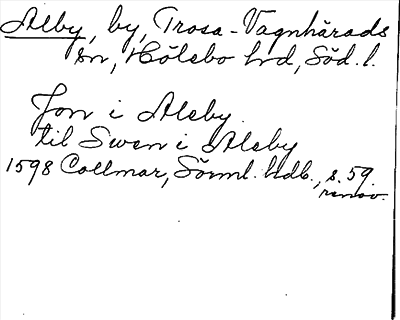 Alby, by, Trosa-Vagnhärads
sn, Hölebo hd, Söd. l.
Jon i Aleby
til Swen i Aleby
1598 Collmar, Sörml. hdb., s. 59
renov.